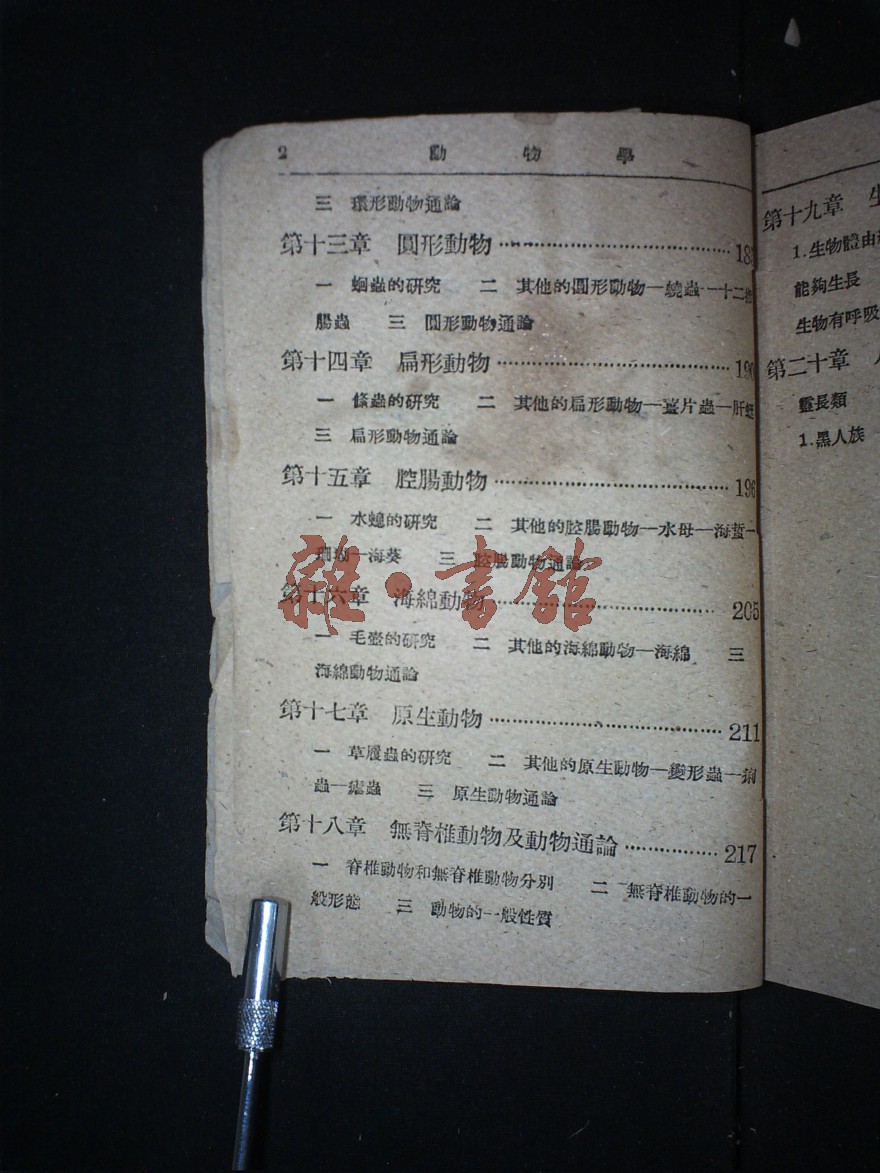 2 動物學
三 環形動物通論
第十三章 圓形動物 183
一 蛔蟲的研究 二 其他的圓形動物—蟯蟲—十二指
腸蟲 三 圓形動物通論
第十四章 扁形動物 190
一 絛蟲的研究 二 其他的扁形動物—薑片蟲—肝蛭
三 扁形動物通論
第十五章 腔腸動物 196
一 水螅的研究 二 其他的腔腸動物—水母—海蜇—
珊瑚—海葵 三 腔腸動物通論
第十六章 海綿動物 205
一 毛壺的研究 二 其他的海綿動物—海綿 三
海綿動物通論
第十七章 原生動物 211
一 草履蟲的研究 二 其他的原生動物—變形蟲—痢
蟲—瘧蟲 三 原生動物通論
第十八章 無脊椎動物及動物通論 217
一 脊椎動物和無脊椎動物分別 二 無脊椎動物的一
般形態 三 動物的一般性質
雜·書館
第十九章 生
1.生物體由
能夠生長
生物有呼吸
第二十章
靈長類
1.黑人族